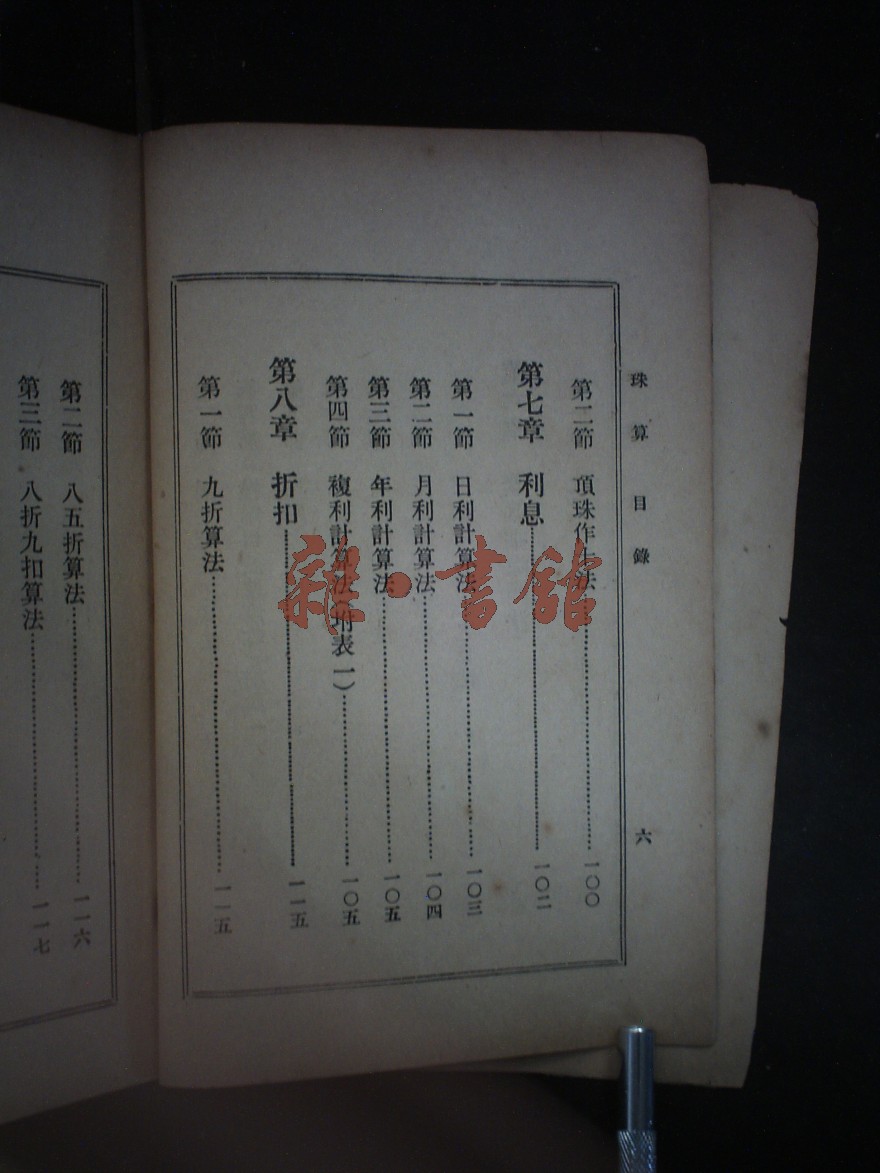 珠算目錄 六
第二節 頂珠作七法 一〇〇
第七章 利息 一〇二
第一節 日利計算法 一〇三
第二節 月利計算法 一〇四
第三節 年利計算法 一〇五
第四節 複利計算法(附表一) 一〇五
第八章 折扣 一一五
第一節 九折算法 一一五
第二節 八五折算法 一一六
第三節 八折九扣算法 一一七
雜·書館